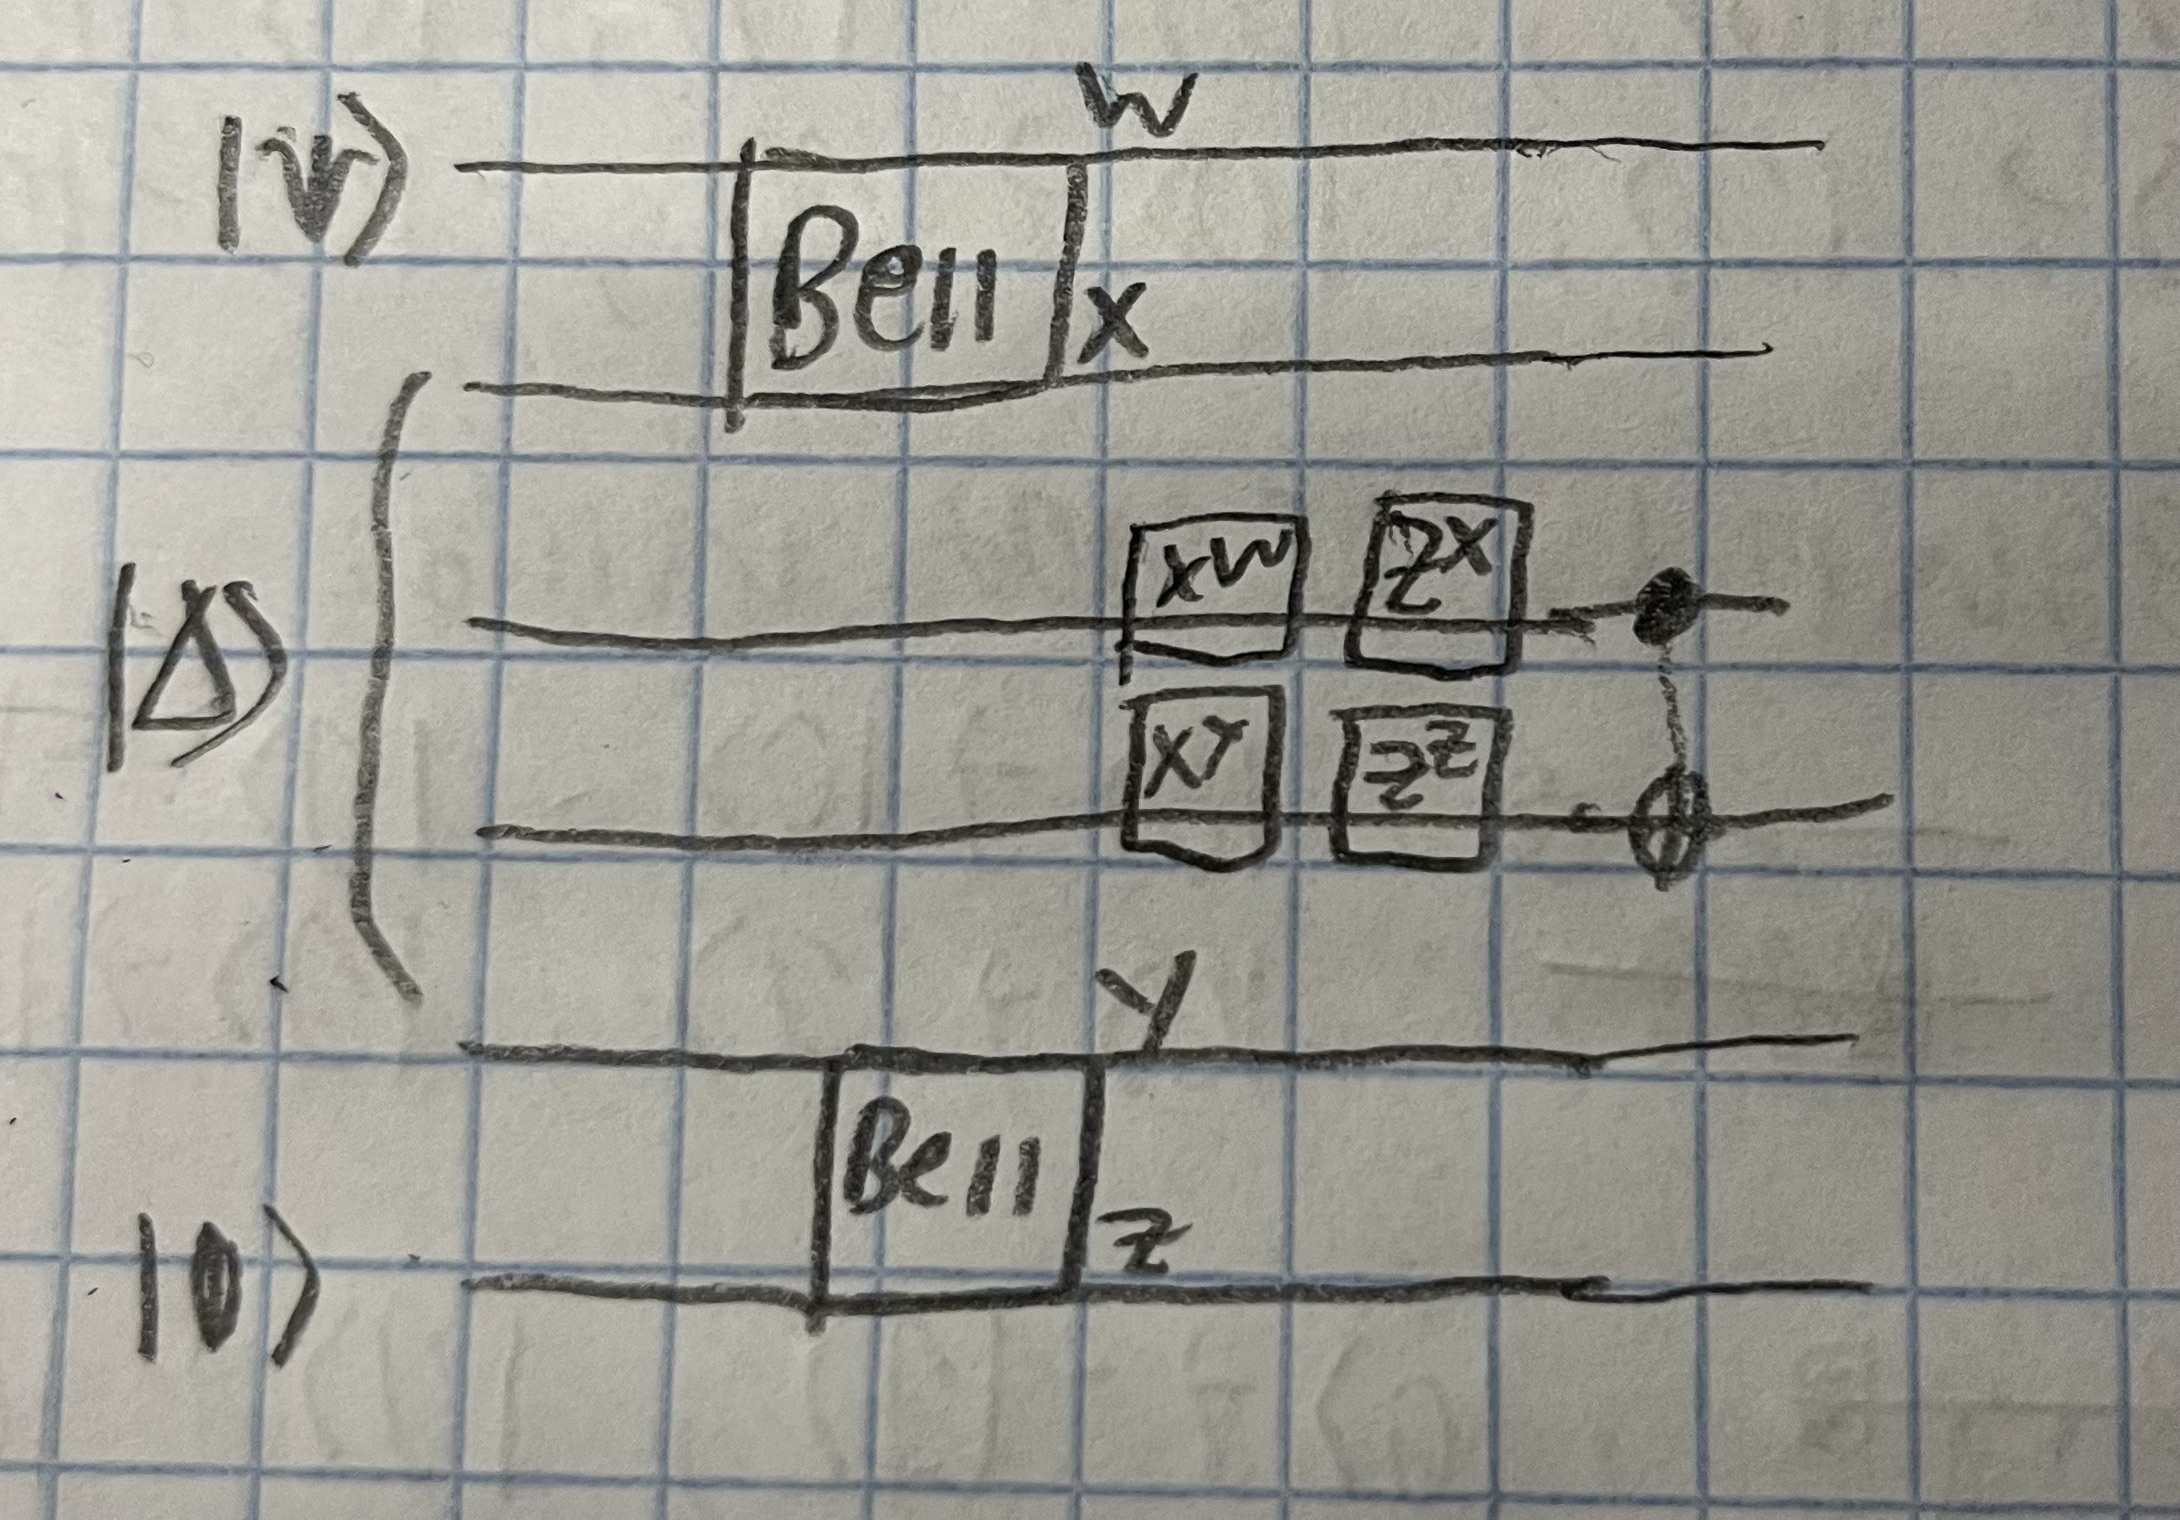 W
|ψ⟩
Bell
X
X^W Z^X
|Δ⟩
X^Y Z^Z
Y
Bell
Z
|0⟩